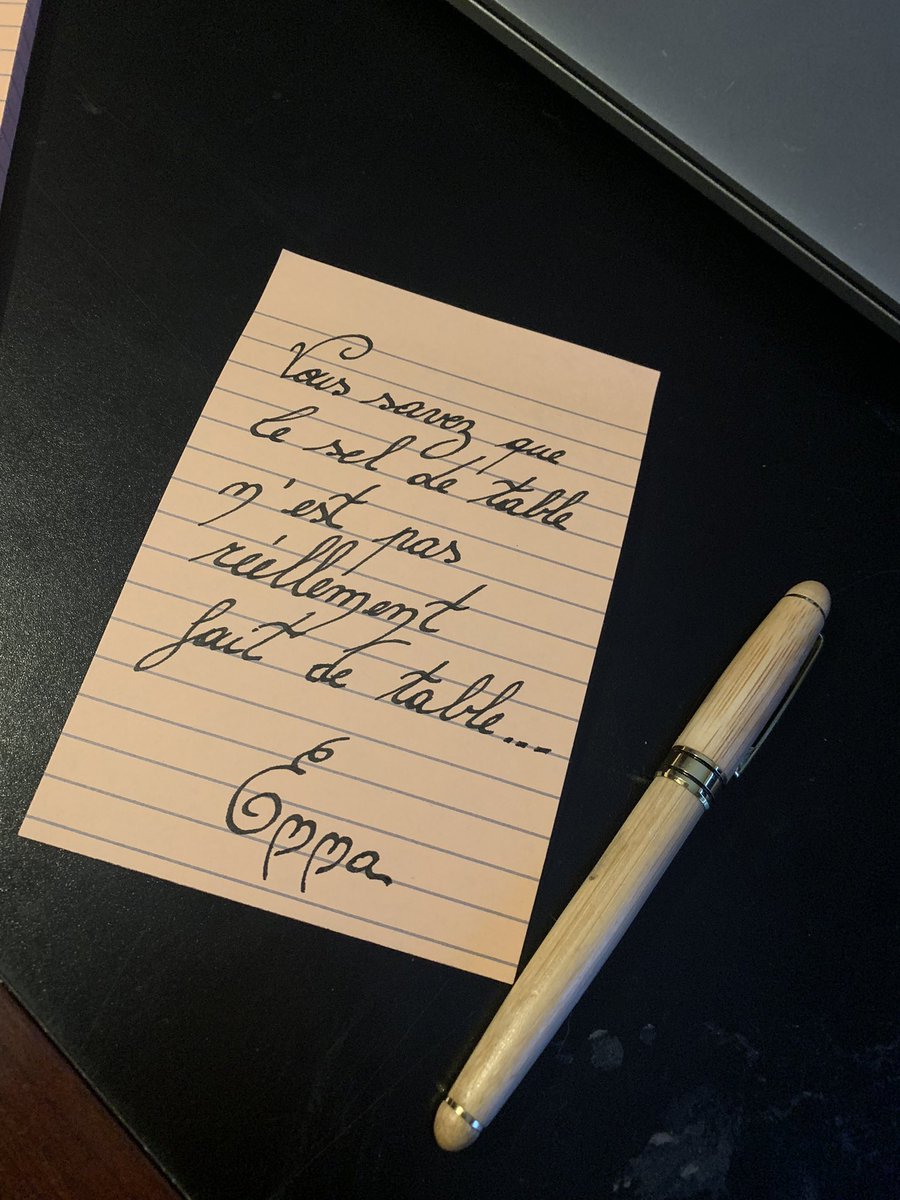 Vous savez que
le sel de table
n'est pas
réellement
fait de table...
Emma